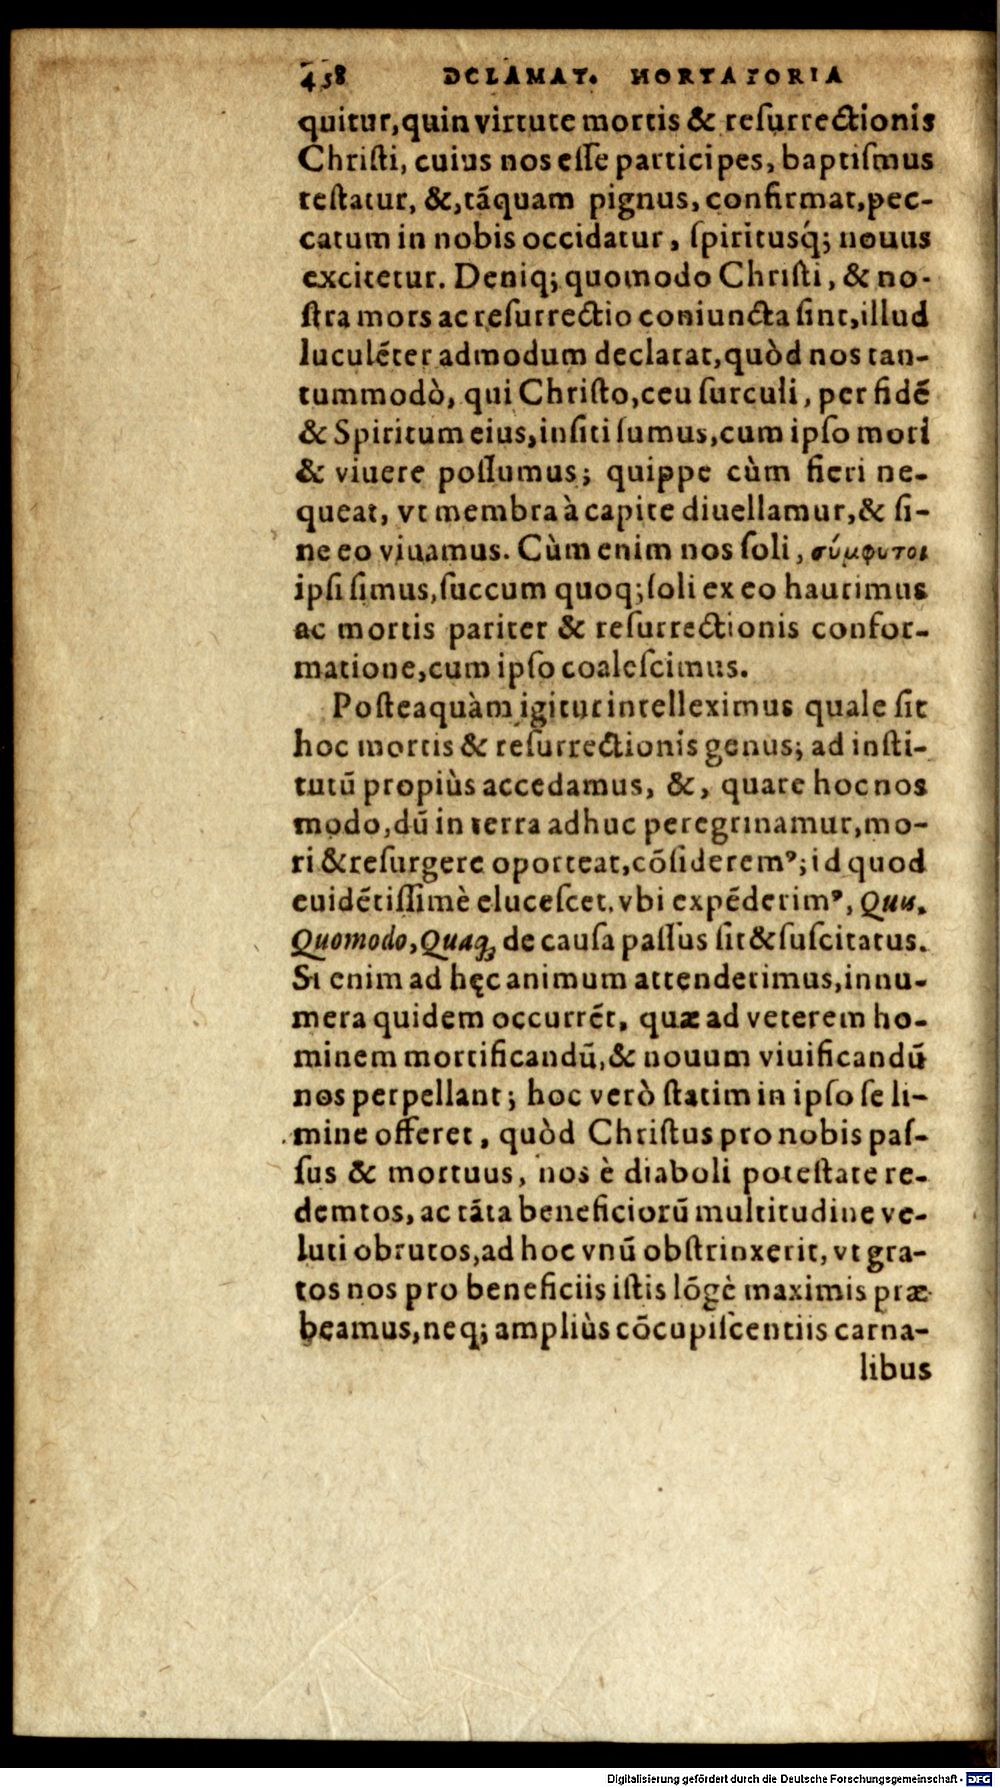 458 DCLAMAT. HORTATORIA
quitur,quin virtute mortis & reſurrectionis
Chriſti, cuius nos eſſe participes, baptiſmus
teſtatur, &,tãquam pignus, confirmat,pec-
catum in nobis occidatur, ſpirituſq́; nouus
excitetur. Deniq; quomodo Chriſti, & no-
ſtra mors ac reſurrectio coniuncta ſint,illud
luculẽter admodum declarat,quòd nos tan-
tummodò, qui Chriſto,ceu ſurculi, per fidẽ
& Spiritum eius,inſiti ſumus,cum ipſo mori
& viuere poſſumus; quippe cùm fieri ne-
queat, vt membra à capite diuellamur,& ſi-
ne eo viuamus. Cùm enim nos ſoli, σύμφυτοι
ipſi ſimus,ſuccum quoq; ſoli ex eo haurimus
ac mortis pariter & reſurrectionis confor-
matione,cum ipſo coaleſcimus.
Poſteaquàm igitur intelleximus quale ſit
hoc mortis & reſurrectionis genus; ad inſti-
tutũ propiùs accedamus, &, quare hoc nos
modo,dũ in terra adhuc peregrinamur,mo-
ri & reſurgere oporteat,cõſideremꝰ; id quod
euidẽtiſſimè eluceſcet, vbi expẽderimꝰ, Quis,
Quomodo, Quaq; de cauſa paſſus ſit & ſuſcitatus.
Si enim ad hęc animum attenderimus,innu-
mera quidem occurrẽt, quæ ad veterem ho-
minem mortificandũ,& nouum viuificandũ
nos perpellant; hoc verò ſtatim in ipſo ſe li-
mine offeret, quòd Chriſtus pro nobis paſ-
ſus & mortuus, nos è diaboli poteſtate re-
demtos, ac tãta beneficiorũ multitudine ve-
luti obrutos,ad hoc vnũ obſtrinxerit, vt gra-
tos nos pro beneficiis iſtis lõgè maximis præ
beamus,neq; ampliùs cõcupiſcentiis carna-
libus
Digitalisierung gefördert durch die Deutsche Forschungsgemeinschaft - DFG